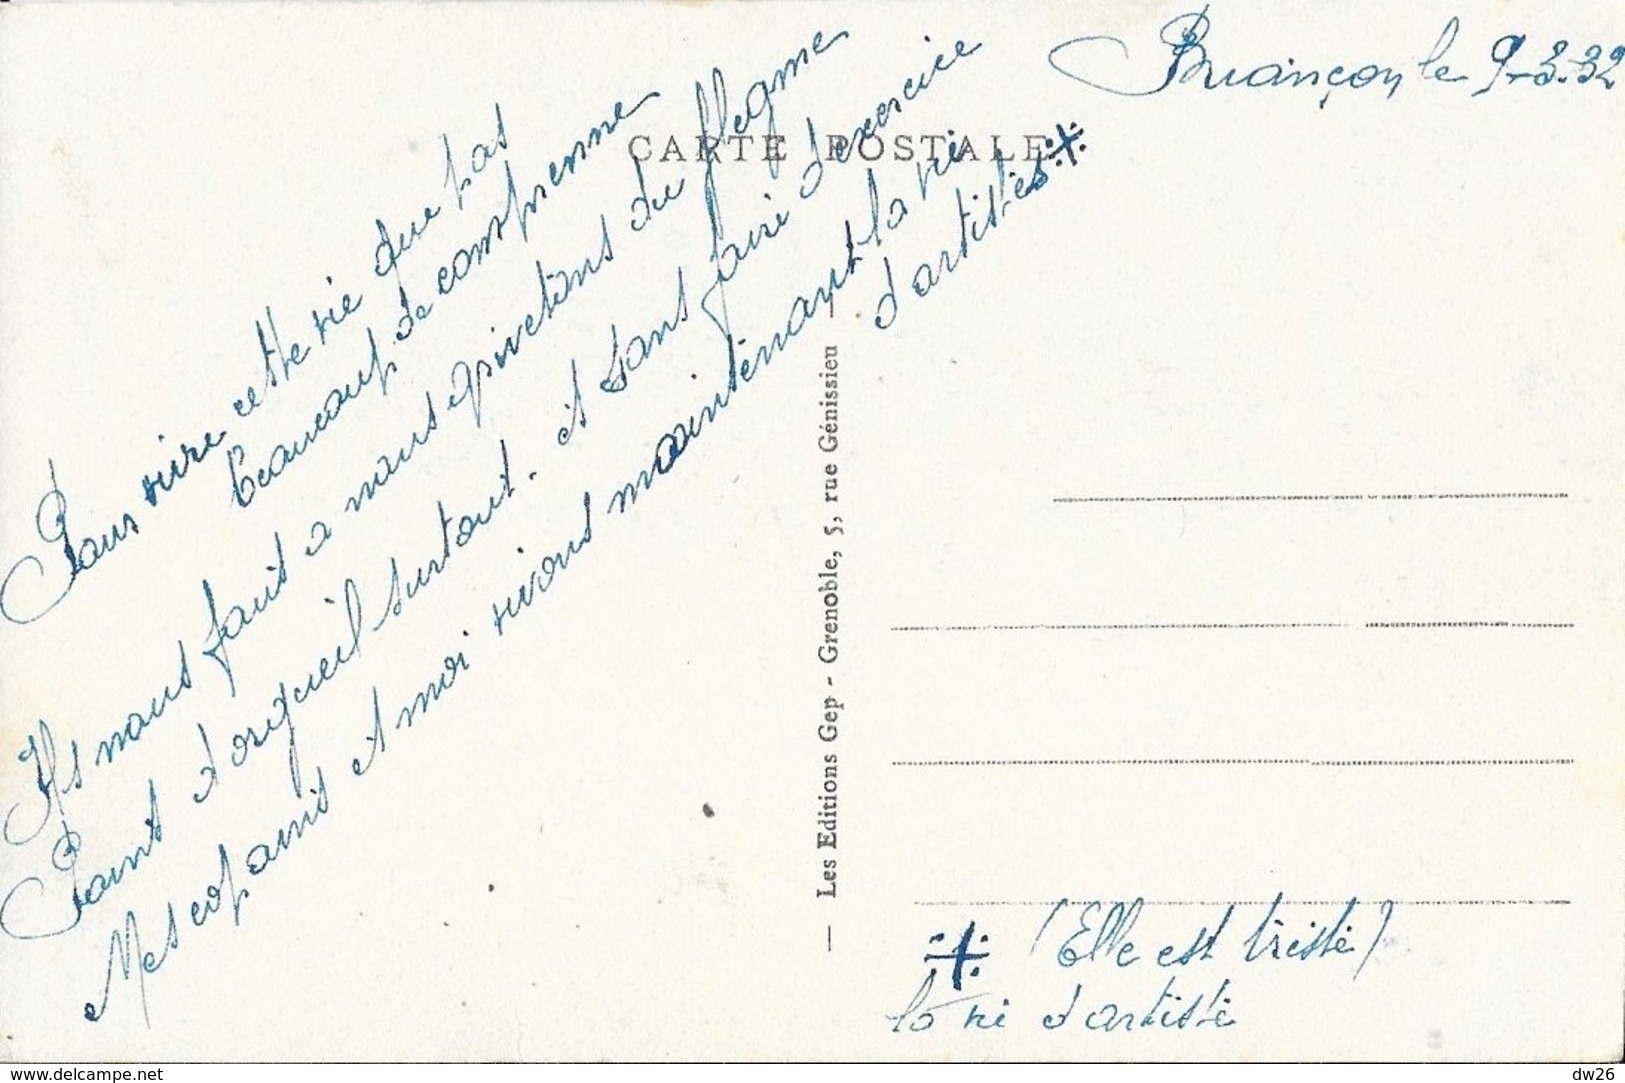 Briançon le 9-3-32
CARTE POSTALE
Pour vivre cette vie que pas
beaucoup de comprenne
Ils nous faut a nous quinctons du flegme
Point d'orgueil surtout. et sans faire d'exercice
Mes copains et moi vivons maintenant la vie
d'artistes ※
— Les Editions Gep - Grenoble, 5, rue Génissieu —
※ (Elle est triste)
la vie d'artiste
www.delcampe.net
dw26